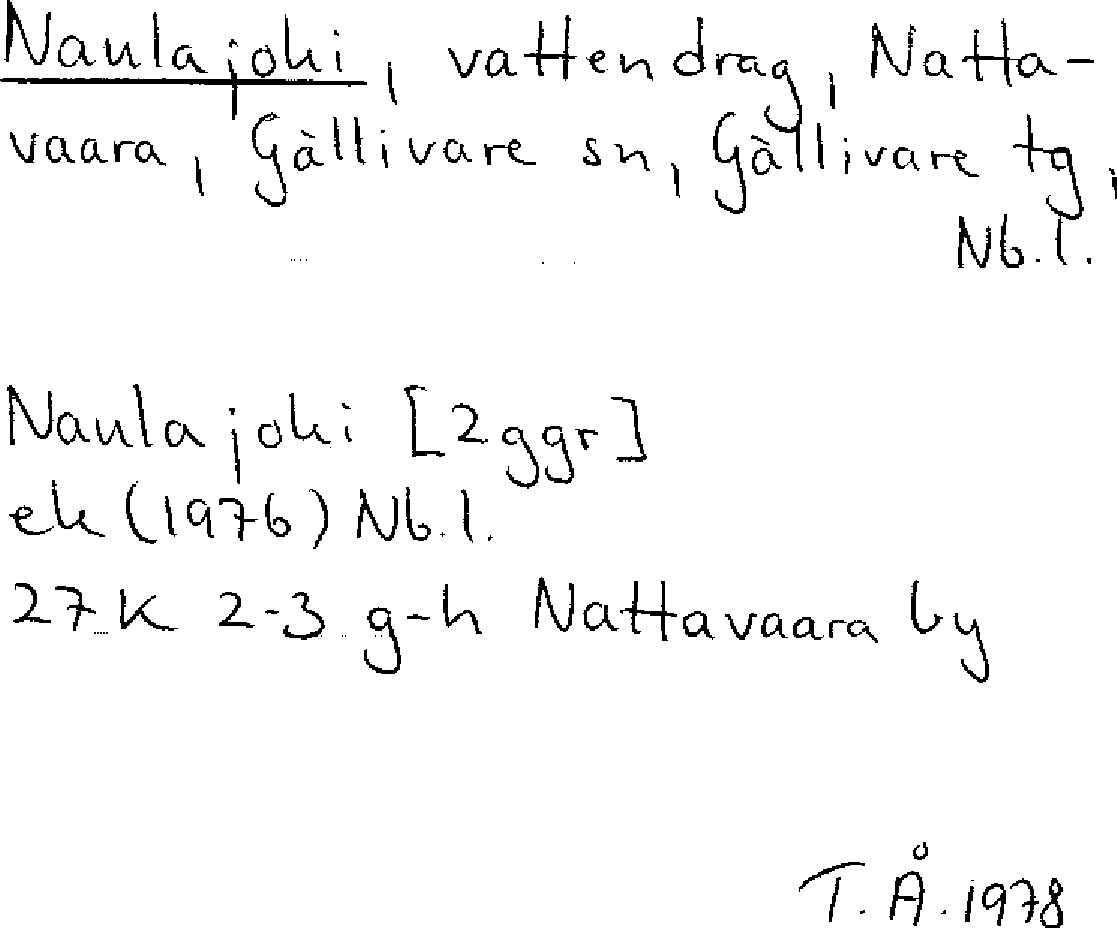 Naulajoki, vattendrag, Natta-
vaara, Gällivare sn, Gällivare tg,
Nb.l.
Naulajoki [2 ggr]
ek (1976) Nb.l.
27 K 2-3 g-h Nattavaara by
T.Å. 1978